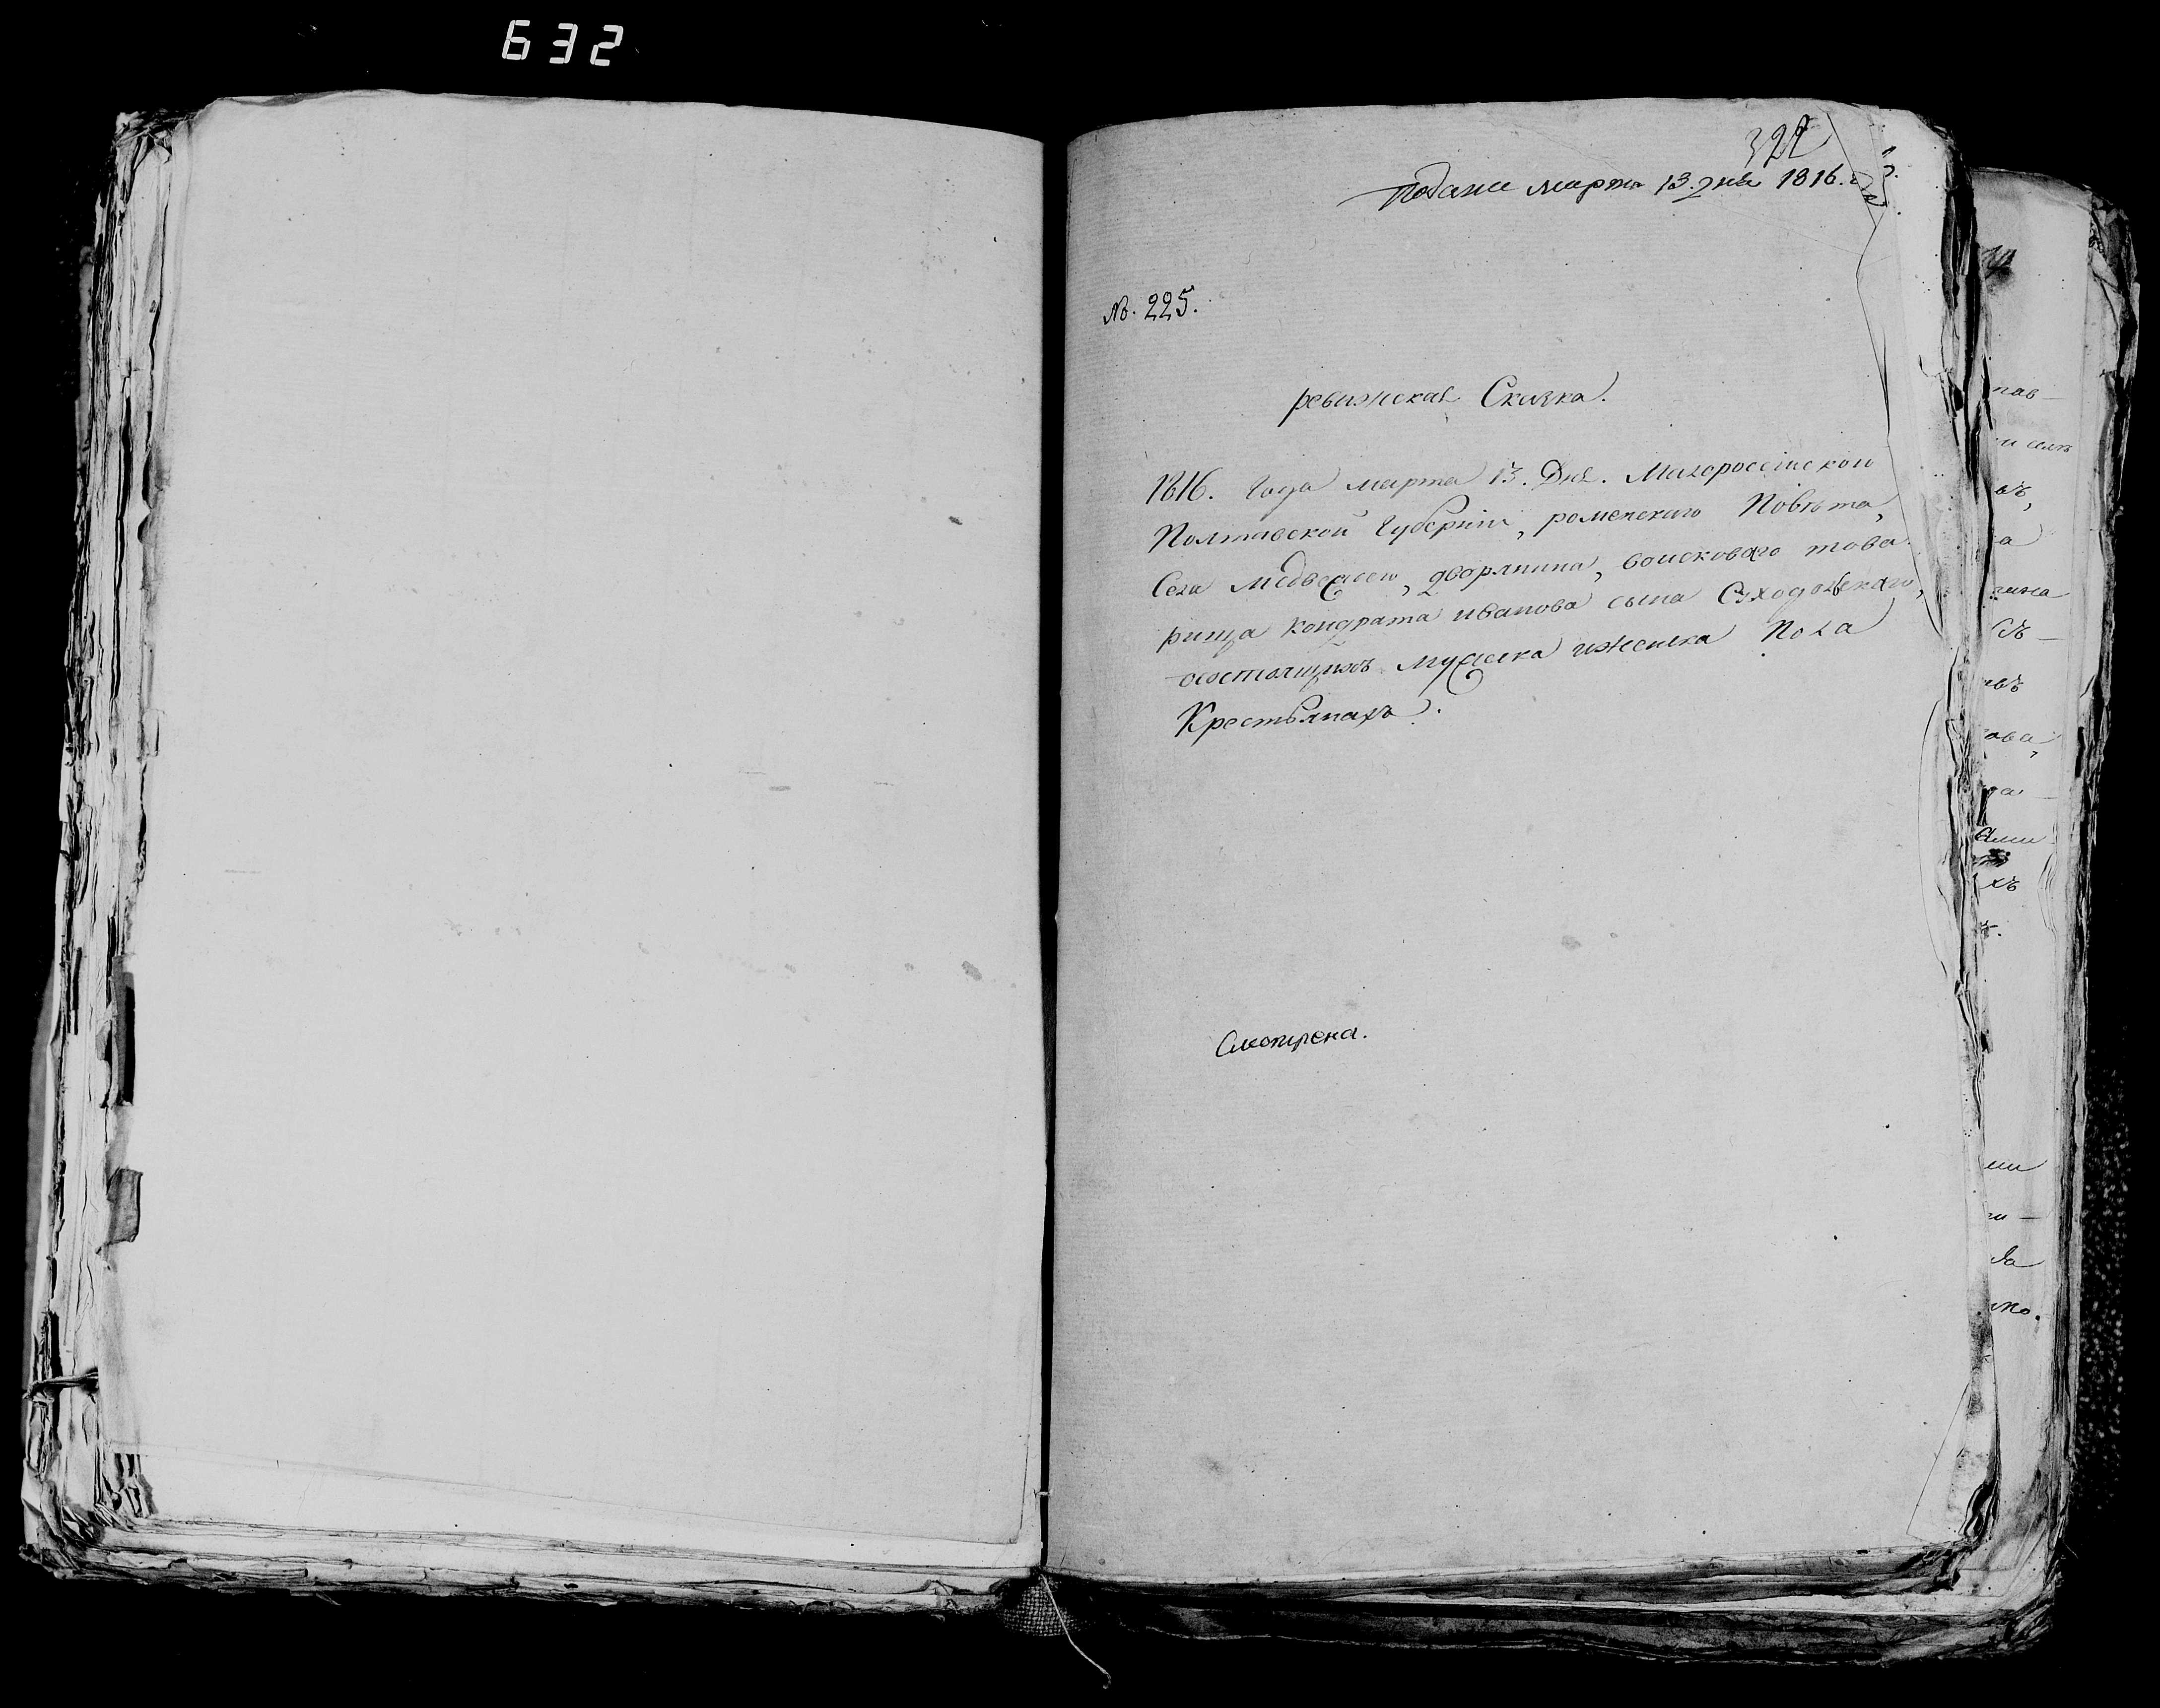 632
322
подана марта 13. дня 1816. г
№. 225.
ревизская Сказка.
1816. Года марта 13. Дня. Малороссійской
Полтавской Губерніи, роменскаго Повѣта,
Села медвежеи, дворянина, воисковаго това
рища кондрата иванова сына Суходолскаго,
осостоящихъ мужеска иженска Пола
Крестьянахъ.
Смотрена.
пав
и селъ
въ,
а
въ
ова,
ра
хъ
ми
ла
но.